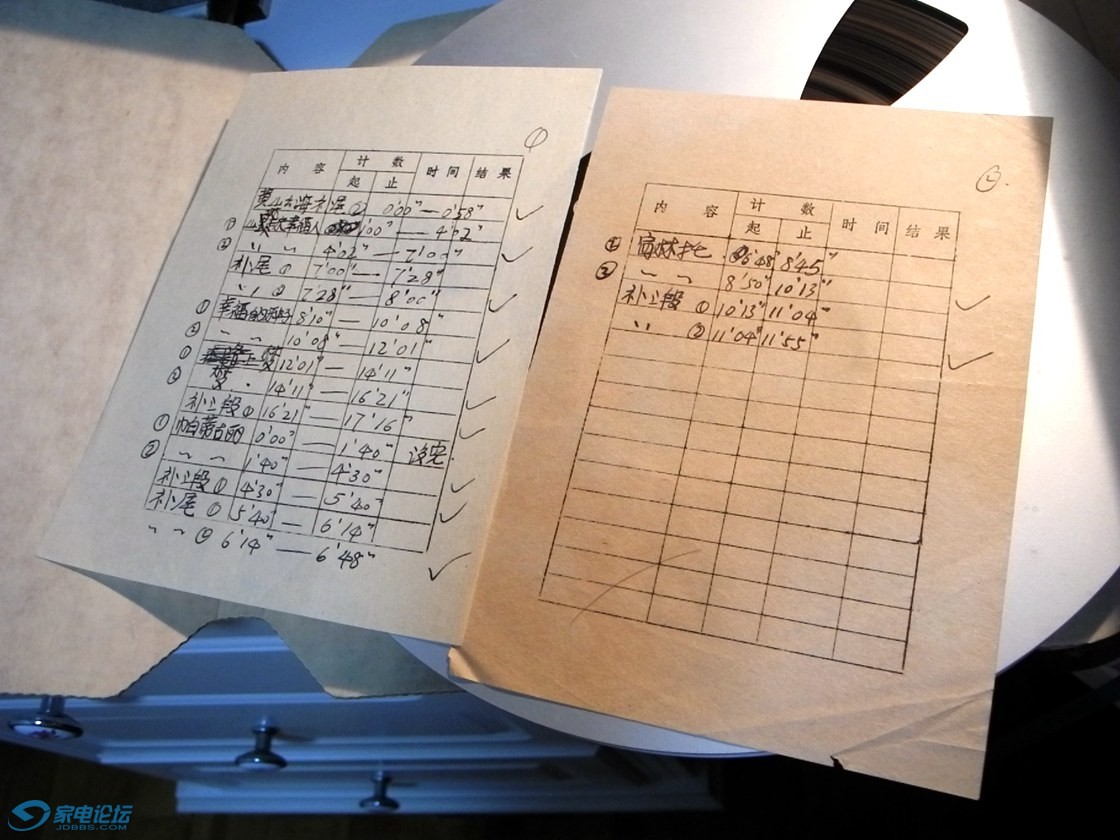 ①
内 容 计 数 时间 结果
起 止
补尾 ② 0'00" — 0'58"
① 幸福人 1'00" — 4'02"
② 〃 〃 4'02" — 7'00"
补尾 ① 7'00" — 7'28"
〃 ② 7'28" — 8'00"
① 幸福的 8'10" — 10'08"
② 〃 10'08" — 12'01"
① 12'01" — 14'11"
② 14'11" — 16'21"
补三段 ① 16'21" — 17'16"
① 帕蒂古丽 0'00" — 1'40"
② 〃 〃 1'40" — 4'30"
补三段 ① 4'30" — 5'40"
补尾 ① 5'40" — 6'14"
〃 〃 ② 6'14" — 6'48"
②
内 容 计 数 时间 结果
起 止
① 6'48" 8'45"
② 〃 〃 8'50" 10'13"
补三段 ① 10'13" 11'04"
〃 ② 11'04" 11'55"
家电论坛
JDBBS.COM